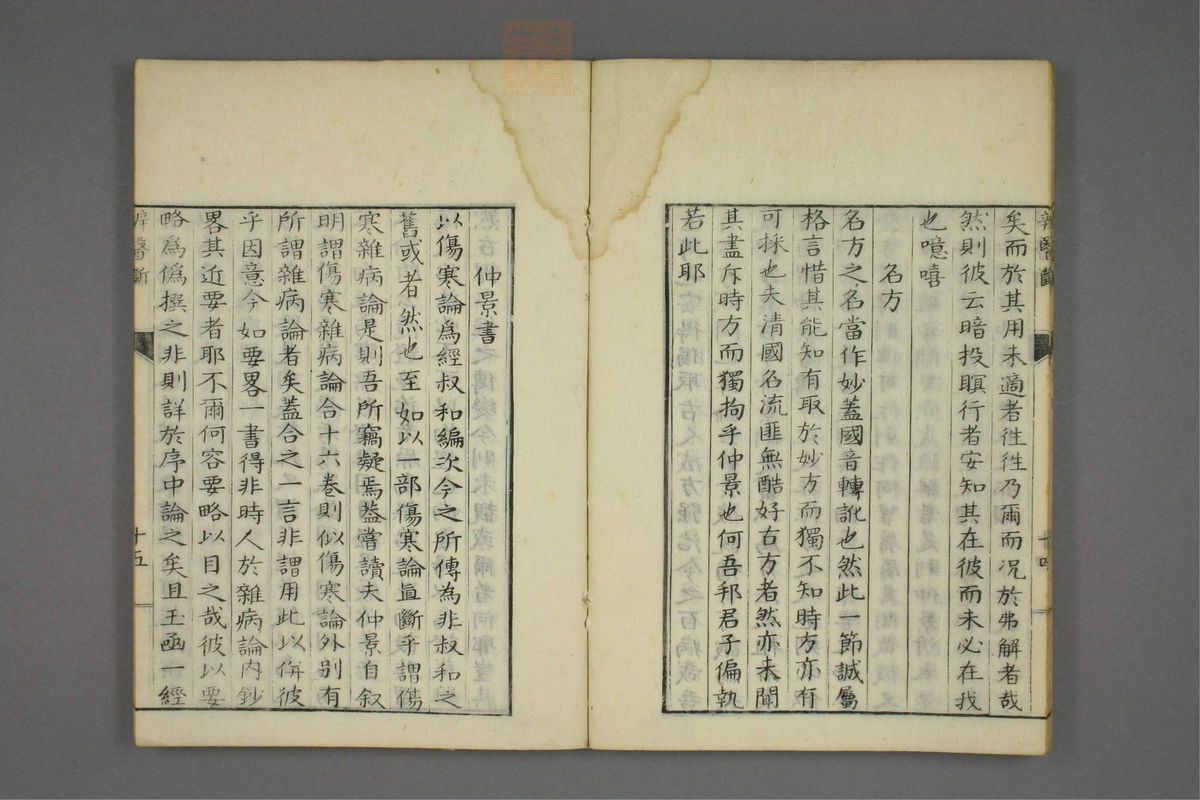 矣而於其用未適者徃徃乃爾而况於弗解者哉
然則彼云暗投瞑行者安知其在彼而未必在我
也噫嘻
名方
名方之名當作妙蓋國音轉訛也然此一節誠屬
格言惜其能知有取於妙方而獨不知時方亦有
可採也夫清國名流匪無酷好古方者然亦未聞
其盡斥時方而獨拘乎仲景也何吾邦君子偏執
若此耶
仲景書
以傷寒論爲經叔和編次今之所傳為非叔和之
舊或者然也至如以一部傷寒論㫁乎謂傷
寒雜病論是則吾所竊疑焉葢嘗讀夫仲景自叙
明謂傷寒雜病論合十六卷則似傷寒論外别有
所謂雜病論者矣蓋合之一言非謂用此以倂彼
乎因意今如要畧一書得非時人於雜病論内鈔
畧其近要者耶不爾何容要略以目之哉彼以要
略爲僞撰之非則詳於序中論之矣且玉函一經
醫斷
十五